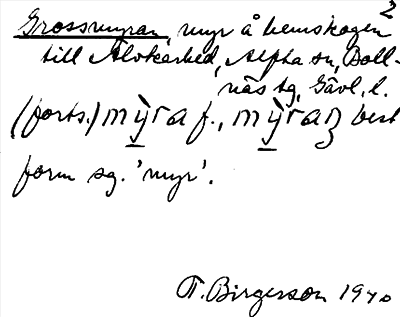 2
Grossmyran, myr å hemskogen
till Älvkarhed, Alfta sn, Boll-
näs tg, Gävl. l.
(forts.) mỳra f., mỳraɳ best
form sg. 'myr'.
T. Birgerson 1940